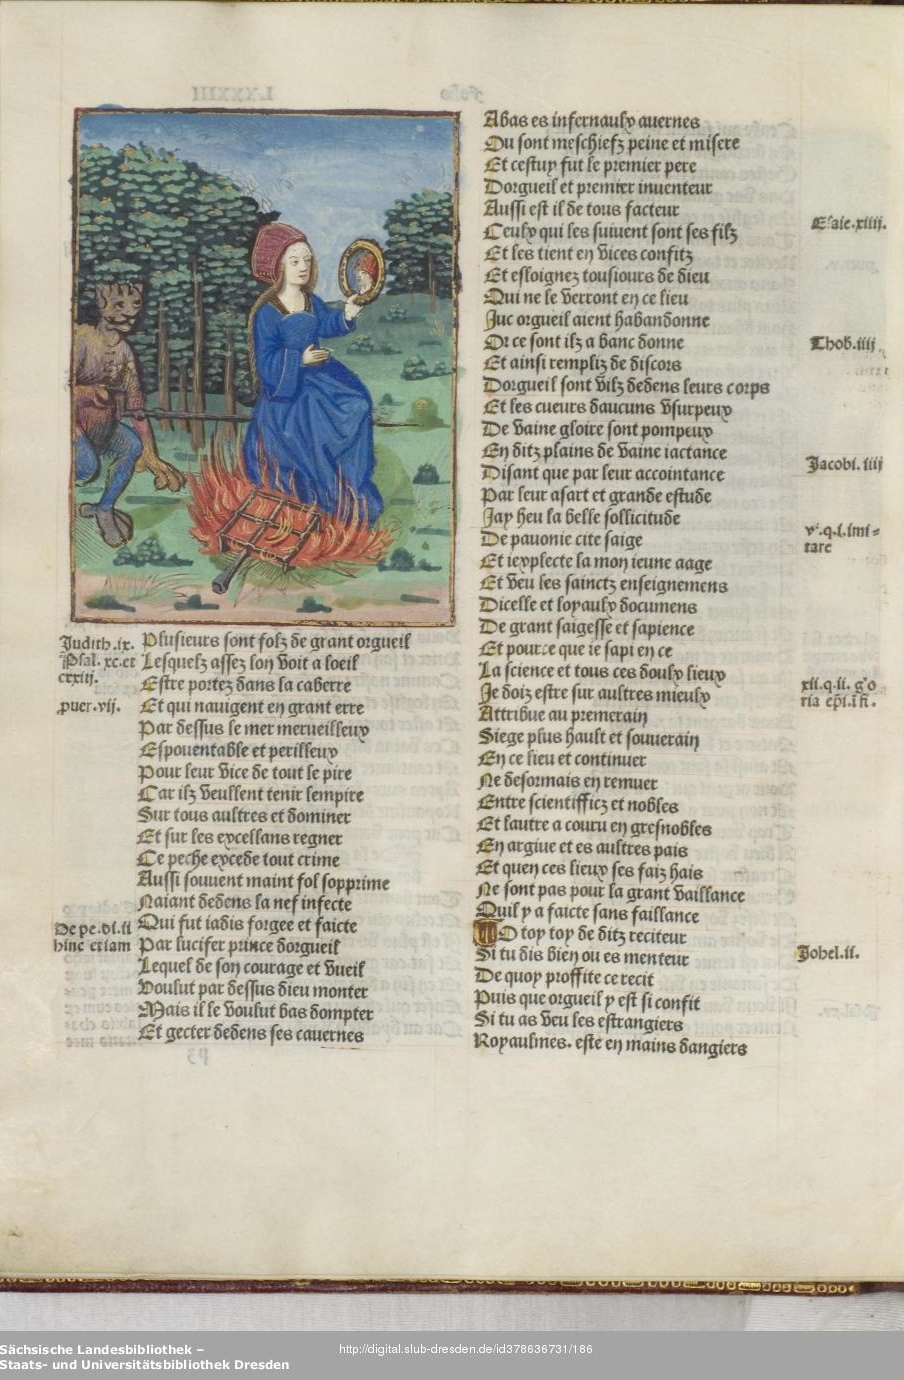 Judith.ix.
Psal.xc.et
cxiij.
puer.vij.
Plusieurs sont folz de grant orgueil
Lesquelz assez lon voit a loeil
Estre portez dans la caberre
Et qui nauigent en grant erre
Par dessus le mer merueilleux
Espouentable et perilleux
Pour leur vice de tout le pire
Car ilz veullent tenir lempire
Sur tous aultres et dominer
Et sur les excellans regner
Ce peche excede tout crime
Aussi souuent maint fol sopprime
Naiant dedens la nef infecte
De pe.di.ii
hinc etiam
Qui fut iadis forgee et faicte
Par lucifer prince dorgueil
Lequel de son courage et vueil
Voulut par dessus dieu monter
Mais il le voulut bas dompter
Et gecter dedens ses cauernes
Abas es infernaulx auernes
Ou sont meschiefz peine et misere
Et cestuy fut le premier pere
Dorgueil et premier inuenteur
Aussi est il de tous facteur
Ceulx qui les suiuent sont ses filz
Et les tient en vices confitz
Et esloignez tousiours de dieu
Qui ne le verront en ce lieu
Juc orgueil aient habandonne
Or ce sont ilz a banc donne
Et ainsi rempliz de discors
Dorgueil sont vilz dedens leurs corps
Et les cueurs daucuns vsurpeux
De vaine gloire sont pompeux
En ditz plains de vaine iactance
Disant que par leur accointance
Par leur asart et grande estude
Jay heu la belle sollicitude
De pauonie cite saige
Et iexplecte la mon ieune aage
Et veu les sainctz enseignemens
Dicelle et loyaulx documens
De grant saigesse et sapience
Et pource que ie sapi en ce
La science et tous ces doulx lieux
Je doiz estre sur aultres mieulx
Attribue au premerain
Siege plus hault et souuerain
En ce lieu et continuer
Ne desormais en remuer
Entre scientifficz et nobles
Et lautre a couru en gresnobles
En argiue et es aultres pais
Et quen ces lieux ses faiz hais
Ne sont pas pour la grant vaillance
Quil y a faicte sans faillance
O toy toy de ditz reciteur
Si tu dis bien ou es menteur
De quoy proffite ce recit
Puis que orgueil y est si confit
Si tu as veu les estrangiers
Royaulmes. este en mains dangiers
Esaie.xiiij.
Thob.iiij.
Jacobi.iiij
v.q.i.imi=
tare
xii.q.ii.g'o
ria ep̄i.i fi.
Johel.ii.
Sächsische Landesbibliothek –
Staats- und Universitätsbibliothek Dresden
http://digital.slub-dresden.de/id378636731/186